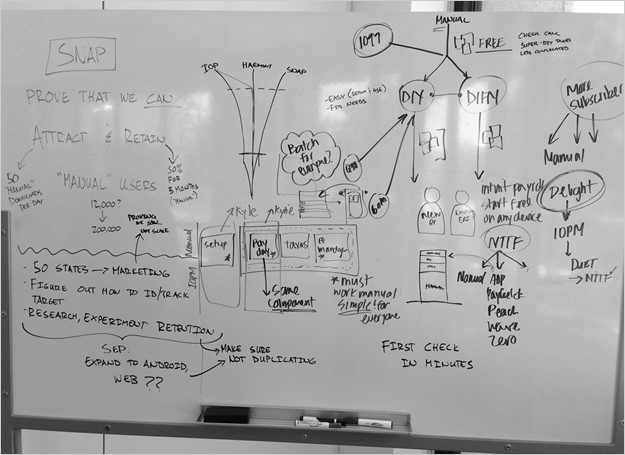 SNAP
PROVE THAT WE CAN
ATTRACT & RETAIN
50
"MANUAL"
DOWNLOADS
PER DAY
50%
FOR
3 MONTHS
(MANUAL)
"MANUAL" USERS
12,000?
→ 200,000
PROVING
NOT SCALE
MANUAL
IOPM
• 50 STATES → MARKETING
• FIGURE OUT HOW TO ID/TRACK
TARGET
• RESEARCH, EXPERIMENT RETENTION
SEP.
EXPAND TO ANDROID,
WEB ??
→ MAKE SURE
NOT DUPLICATING
IOP
HARMONY
SNAP
Kyle
Kylie
Batch
for
everyone?
setup
*
Pay
day *
taxes
manage *
Same
component
* must
work manual
simple! for
everyone
1099
MANUAL
FREE
CHECK CALC
SUPER-DIY TAXES
LESS COMPLICATED
- EASY (SETUP & USE)
- FITS NEEDS
DIY
DIFM
MANUAL
FIRST CHECK
IN MINUTES
intuit payroll
start free
on any device
NTTF
Manual
ADP
Paychex
Peach
Wave
Zero
More
Subscribers
Manual
Delight
IOPM
→ NTTF